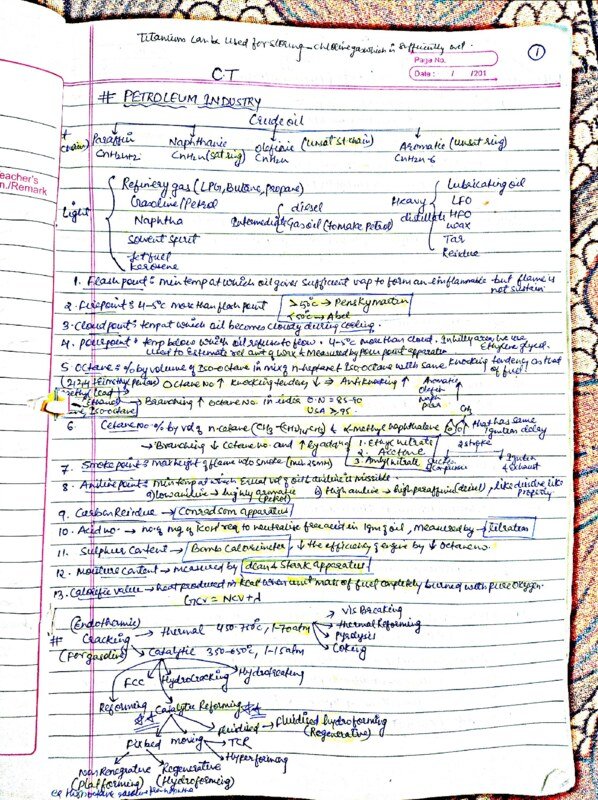 Titanium can be used for storing chlorine gas which is sufficiently wet.
1
Page No.
Date : / /201
C.T
# PETROLEUM INDUSTRY
Crude oil
Paraffin Naphthanic Olefinic (unsat st chain) Aromatic (unsat ring)
(chain) CnH2n+2 CnH2n (sat ring) CnH2n CnH2n-6
Teacher's
Sign./Remark
Light
Refinery gas (LPG, Butane, propane)
Gasoline/Petrol
Naphtha
Solvent Spirit
Jet fuel
Kerosene
Intermediate
diesel
Gas oil (to make Petrol)
Heavy distillate
Lubricating oil
LFO
HFO
wax
Tar
Residue
1. Flash point: min temp at which oil gives sufficient vap to form an inflammable but flame is not sustain
2. Fire point: 4-5°c more than flash point >50°c → Pensky martin
<50°c → Abel
3. Cloud point: temp at which oil becomes cloudy during cooling.
4. Pour point → temp below which oil refuse to flow. 4-5°c more than cloud. In hilly areas we use Ethylene glycol.
used to Estimate rel amt of wax & Measured by Pour point apparatus
5. Octane: % by volume of Iso-octane in mix of n-heptane & Iso octane with same knocking tendency as that of fuel.
Octane No ↑ Knocking tendency ↓ → Antiknocking ↑
Aromatic
Olefin
Naph
para
→ Branching ↑ Octane No. in india O.N = 85-90
USA ≥ 95
Ethanol
Iso-octane
6. Cetane No: % by vol of n-cetane (CH3-(CH2)14-CH3) & α-methyl naphthalene CH3 that has same ignition delay
→ Branching ↓ Cetane no. and ↑ by adding
1. Ethyl nitrate
2. Acetone
3. Amyl nitrate
2 stroke
7. Smoke point: max height of flame w/o smoke
& exhaust
8. Aniline point: min temp at which Equal vol of oil & aniline is missible.
a) low aniline → highly aromatic (Petrol) b) High aniline → high paraffin (diesel), like dissolve like property
9. Carbon Residue → Conradson apparatus
10. Acid no. → no. of mg of KOH req to neutralize free acid in 1gm of oil, measured by → titration
11. Sulphur Content → Bomb Calorimeter, ↓ the efficiency of engine by ↓ Octane no.
12. Moisture Content → measured by dean & Stark Apparatus
13. Calorific value → heat produced in kcal when unit mass of fuel completely burned with pure Oxygen.
GCV = NCV + λ
(Endothermic)
# Cracking → thermal 450-750°c, 1-70 atm
→ Vis Breaking
→ thermal Reforming
→ Pyrolysis
→ Coking
(For gasoline) → Catalytic 350-650°c, 1-15 atm
FCC Hydrocracking Hydrotreating
Reforming Catalytic Reforming
Fixbed moving → TCR
→ Hyperforming
fluidised → Fluidised hydroforming
(Regenerative)
Non Regenerative Regenerative
(Platforming) (Hydroforming)